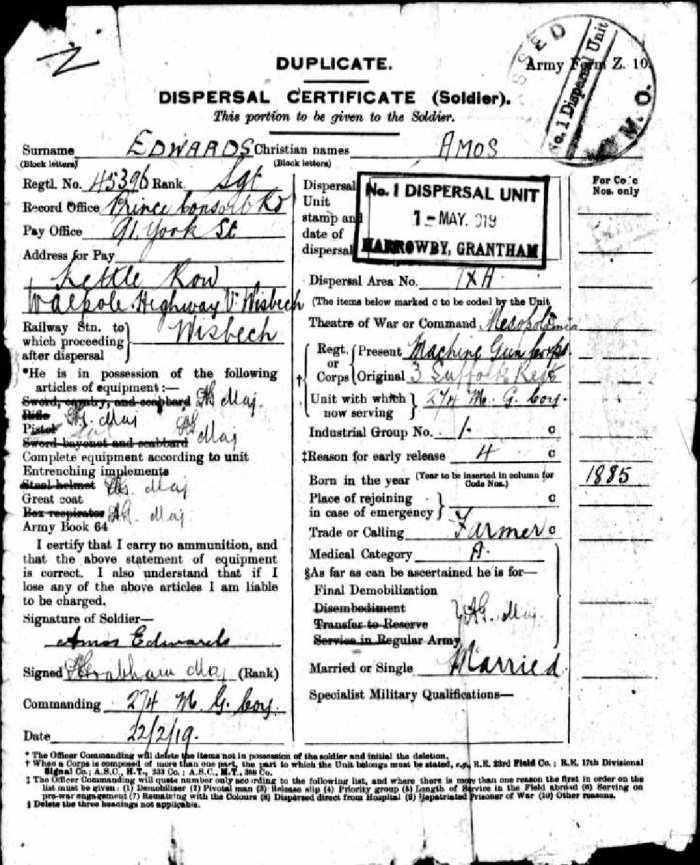 PASSED
No. 1 Dispersal Unit
M. O.
DUPLICATE.
Army Form Z. 10.
DISPERSAL CERTIFICATE (Soldier).
This portion to be given to the Soldier.
Surname EDWARDS Christian names AMOS
(Block letters) (Block letters)
Regtl. No. 45396 Rank Sgt
Record Office Prince Consort Rd
Pay Office 91. York St
Address for Pay
Kettle Row
Walpole Highway Nr Wisbech
Railway Stn. to which proceeding after dispersal } Wisbech
*He is in possession of the following
articles of equipment:—
Sword, cavalry, and scabbard Maj.
Rifle Maj
Pistol
Sword-bayonet and scabbard Maj
Complete equipment according to unit
Entrenching implements
Steel helmet Maj
Great coat
Box respirator Maj
Army Book 64
I certify that I carry no ammunition, and
that the above statement of equipment
is correct. I also understand that if I
lose any of the above articles I am liable
to be charged.
Signature of Soldier—
Amos Edwards
Signed Maj (Rank)
Commanding 274 M. G. Coy.
Date 22/2/19.
Dispersal
Unit
stamp and
date of
dispersal
No. 1 DISPERSAL UNIT
1 - MAY. 919
HARROWBY, GRANTHAM
For Code
Nos. only
Dispersal Area No. IXA
(The items below marked c to be coded by the Unit
Theatre of War or Command Mesopotamia
† Regt. or Corps { Present Machine Gun Corps
Original 3 Suffolk Regt
Unit with which now serving } 274 M. G. Coy.
Industrial Group No. 1. c
‡Reason for early release 4 c
Born in the year (Year to be inserted in column for Code Nos.) 1885
Place of rejoining in case of emergency } c
Trade or Calling Farmer c
Medical Category A.
§As far as can be ascertained he is for—
Final Demobilization
Disembodiment
Transfer to Reserve Maj.
Service in Regular Army
Married or Single Married
Specialist Military Qualifications—
* The Officer Commanding will delete the items not in possession of the soldier and initial the deletion.
† When a Corps is composed of more than one part, the part to which the Unit belongs must be stated, e.g., R.E. 23rd Field Co.; R.E. 17th Divisional
Signal Co.; A.S.C., H.T., 333 Co.; A.S.C., M.T., 388 Co.
‡ The Officer Commanding will quote number only according to the following list, and where there is more than one reason the first in order on the
list must be given: (1) Demobiliser (2) Pivotal man (3) Release slip (4) Priority group (5) Length of Service in the Field abroad (6) Serving on
pre-war engagement (7) Remaining with the Colours (8) Dispersed direct from Hospital (9) Repatriated Prisoner of War (10) Other reasons.
§ Delete the three headings not applicable.